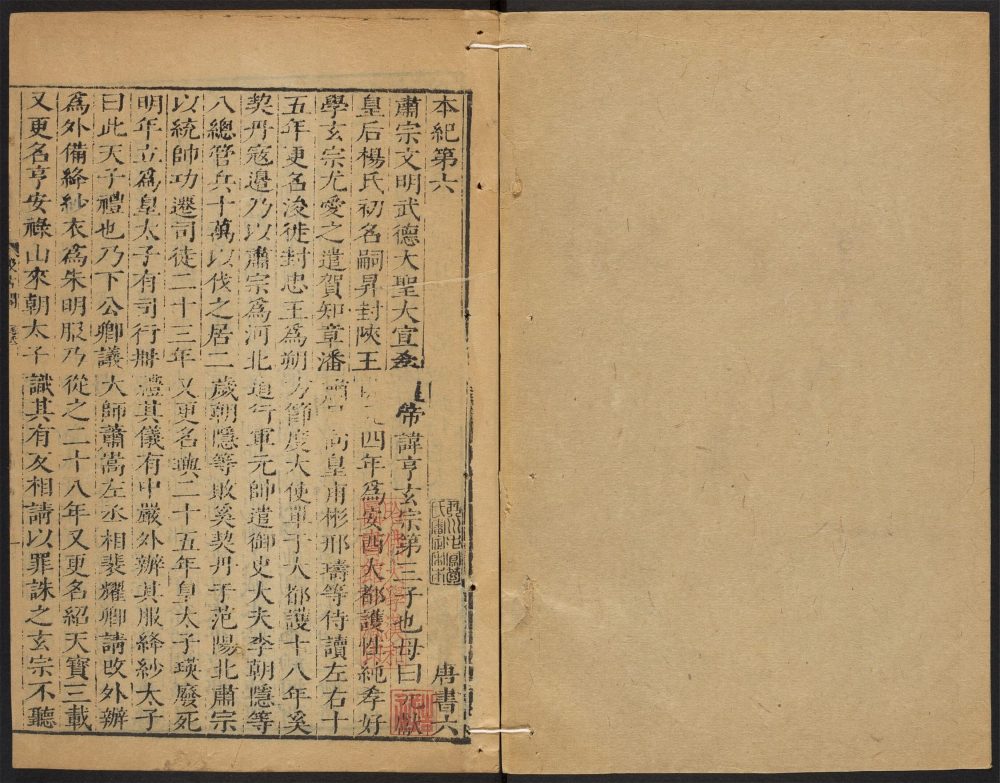 本紀第六 唐書六
肅宗文明武德大聖大宣孝皇帝諱亨玄宗第三子也母曰元獻
皇后楊氏初名嗣昇封陝王四年爲安西大都護性純孝好
學玄宗尤愛之遣賀知章潘肅皇甫彬邢璹等侍讀左右十
五年更名浚徙封忠王爲朔方節度大使單于大都護十八年奚
契丹寇邊乃以肅宗爲河北道行軍元帥遣御史大夫李朝隱等
八總管兵十萬以伐之居二歲朝隱等敗奚契丹于范陽北肅宗
以統帥功遷司徒二十三年又更名璵二十五年皇太子瑛廢死
明年立爲皇太子有司行冊禮其儀有中嚴外辦其服絳紗太子
曰此天子禮也乃下公卿議太師蕭嵩左丞相裴耀卿請改外辦
爲外備絳紗衣爲朱明服乃從之二十八年又更名紹天寶三載
又更名亨安祿山來朝太子識其有反相請以罪誅之玄宗不聽